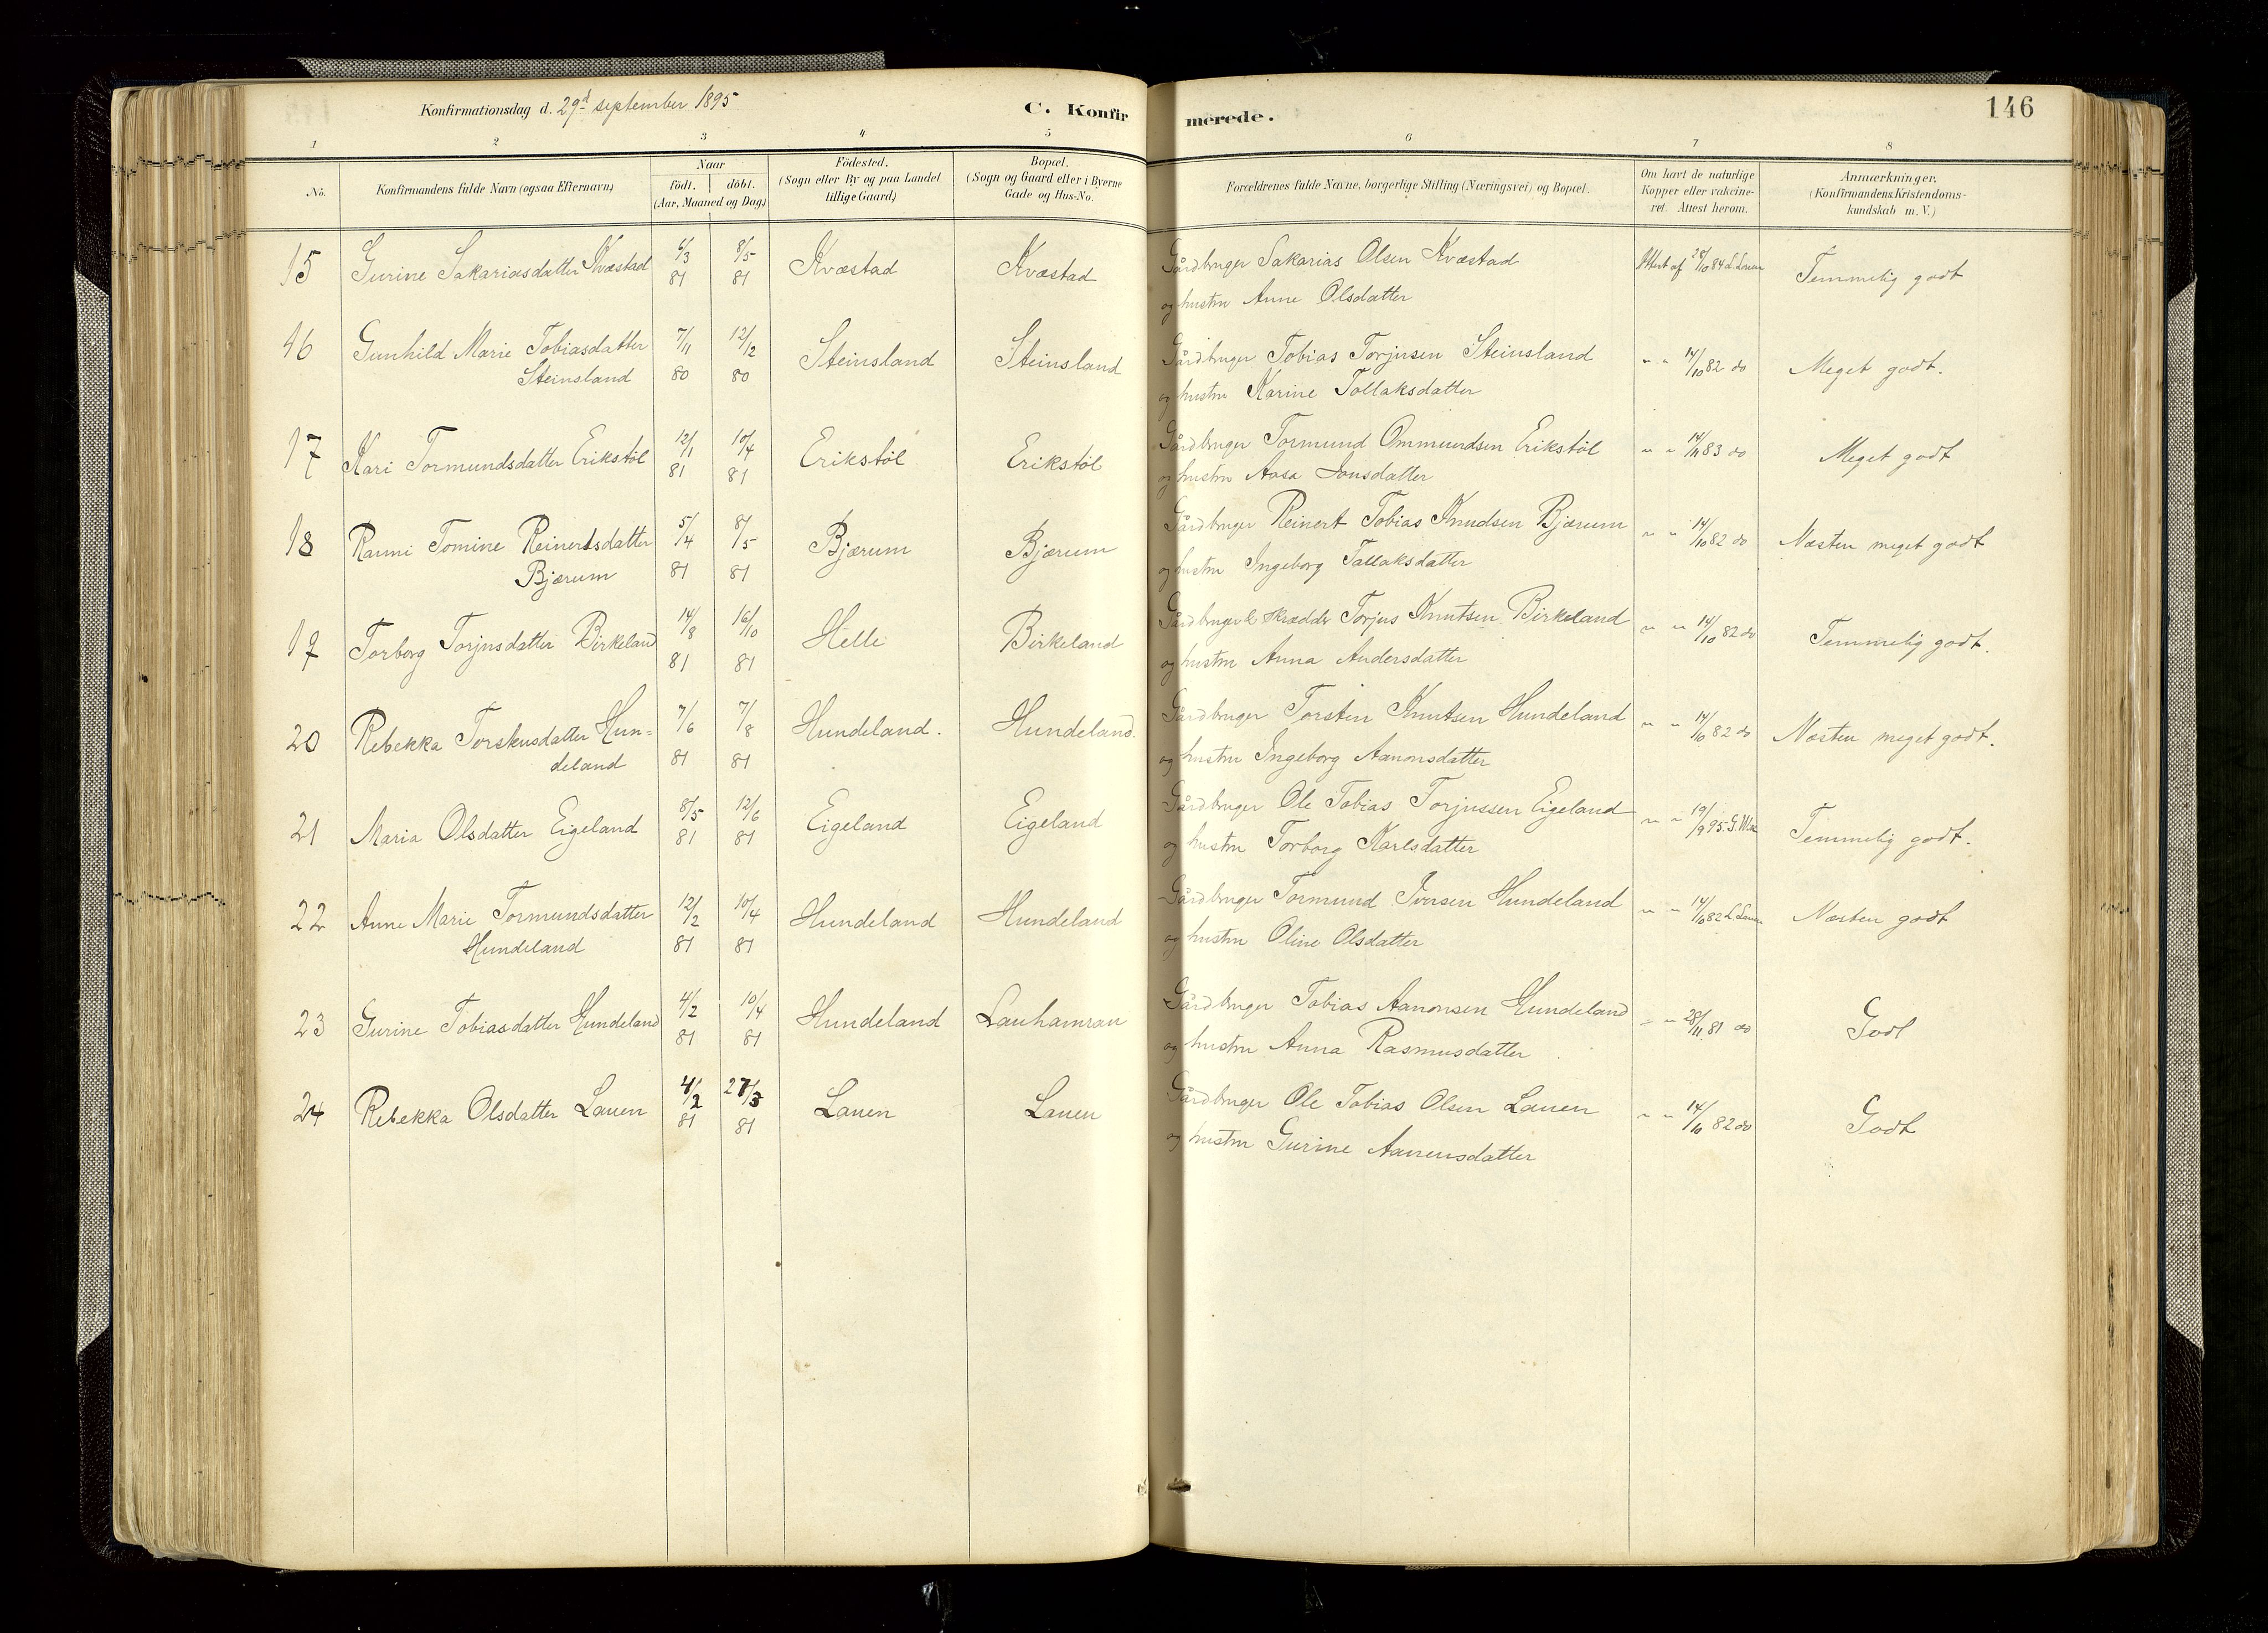 Konfirmationsdag d. 29d september 1895
C. Konfirmerede.
146
1 2 3 4 5 6 7 8
No.
Konfirmandens fulde Navn (ogsaa Efternavn)
Naar
født. døbt.
(Aar, Maaned og Dag)
Fødested.
(Sogn eller By og paa Landet
tillige Gaard)
Bopæl.
(Sogn og Gaard eller i Byerne
Gade og Hus-No.
Forældrenes fulde Navne, borgerlige Stilling (Næringsvei) og Bopæl.
Om havt de naturlige
Kopper eller vakcine-
ret. Attest herom.
Anmærkninger.
(Konfirmandens Kristendoms-
kundskab m. V.)
15 Gurine Sakariasdatter Kvæstad 6/3 81 8/5 81 Kvæstad Kvæstad Gårdbruger Sakarias Olsen Kvæstad Attest af 28/10 84 L. Lauen Temmelig godt
og hustru Anne Olsdatter
16 Gunhild Marie Tobiasdatter 7/11 80 12/12 80 Steinsland Steinsland Gårdbruger Tobias Torjusen Steinsland " " 14/10 82 do Meget godt.
Steinsland og hustru Karine Tollaksdatter
17 Kari Tormundsdatter Erikstøl 12/1 81 10/4 81 Erikstøl Erikstøl Gårdbruger Tormund Ommundsen Erikstøl " " 14/11 83 do Meget godt
og hustru Aasa Jonsdatter
18 Ranni Tomine Reinertsdatter 5/4 81 8/5 81 Bjærum Bjærum Gårdbruger Reinert Tobias Knudsen Bjærum " " 14/10 82 do Næsten meget godt
Bjærum og hustru Ingeborg Tallaksdatter
19 Torborg Torjusdatter Birkeland 14/8 81 16/10 81 Helle Birkeland Gårdbruger & skrædder Torjus Knutsen Birkeland " " 14/10 82 do Temmelig godt.
og hustru Anna Andersdatter
20 Rebekka Torstensdatter Hun- 7/6 81 7/8 81 Hundeland. Hundeland. Gårdbruger Torstin Knutsen Hundeland " " 14/10 82 do Næsten meget godt.
deland og hustru Ingeborg Aanonsdatter
21 Maria Olsdatter Eigeland 8/5 81 12/6 81 Eigeland Eigeland Gårdbruger Ole Tobias Torjussen Eigeland " " 19/9 95. Temmelig godt.
og hustru Torborg Karlsdatter
22 Anne Marie Tormundsdatter 12/2 81 10/4 81 Hundeland Hundeland Gårdbruger Tormund Iversen Hundeland " " 14/10 82 L. Lauen Næsten godt
Hundeland og hustru Oline Olsdatter
23 Gurine Tobiasdatter Hundeland 4/2 81 10/4 81 Hundeland Gårdbruger Tobias Aanonsen Hundeland " " 28/11 81 do Godt
og hustru Anna Rasmusdatter
24 Rebekka Olsdatter Lauen 4/2 81 27/3 81 Lauen Lauen Gårdbruger Ole Tobias Olsen Lauen " " 14/10 82 do Godt
og hustru Gurine Aanensdatter